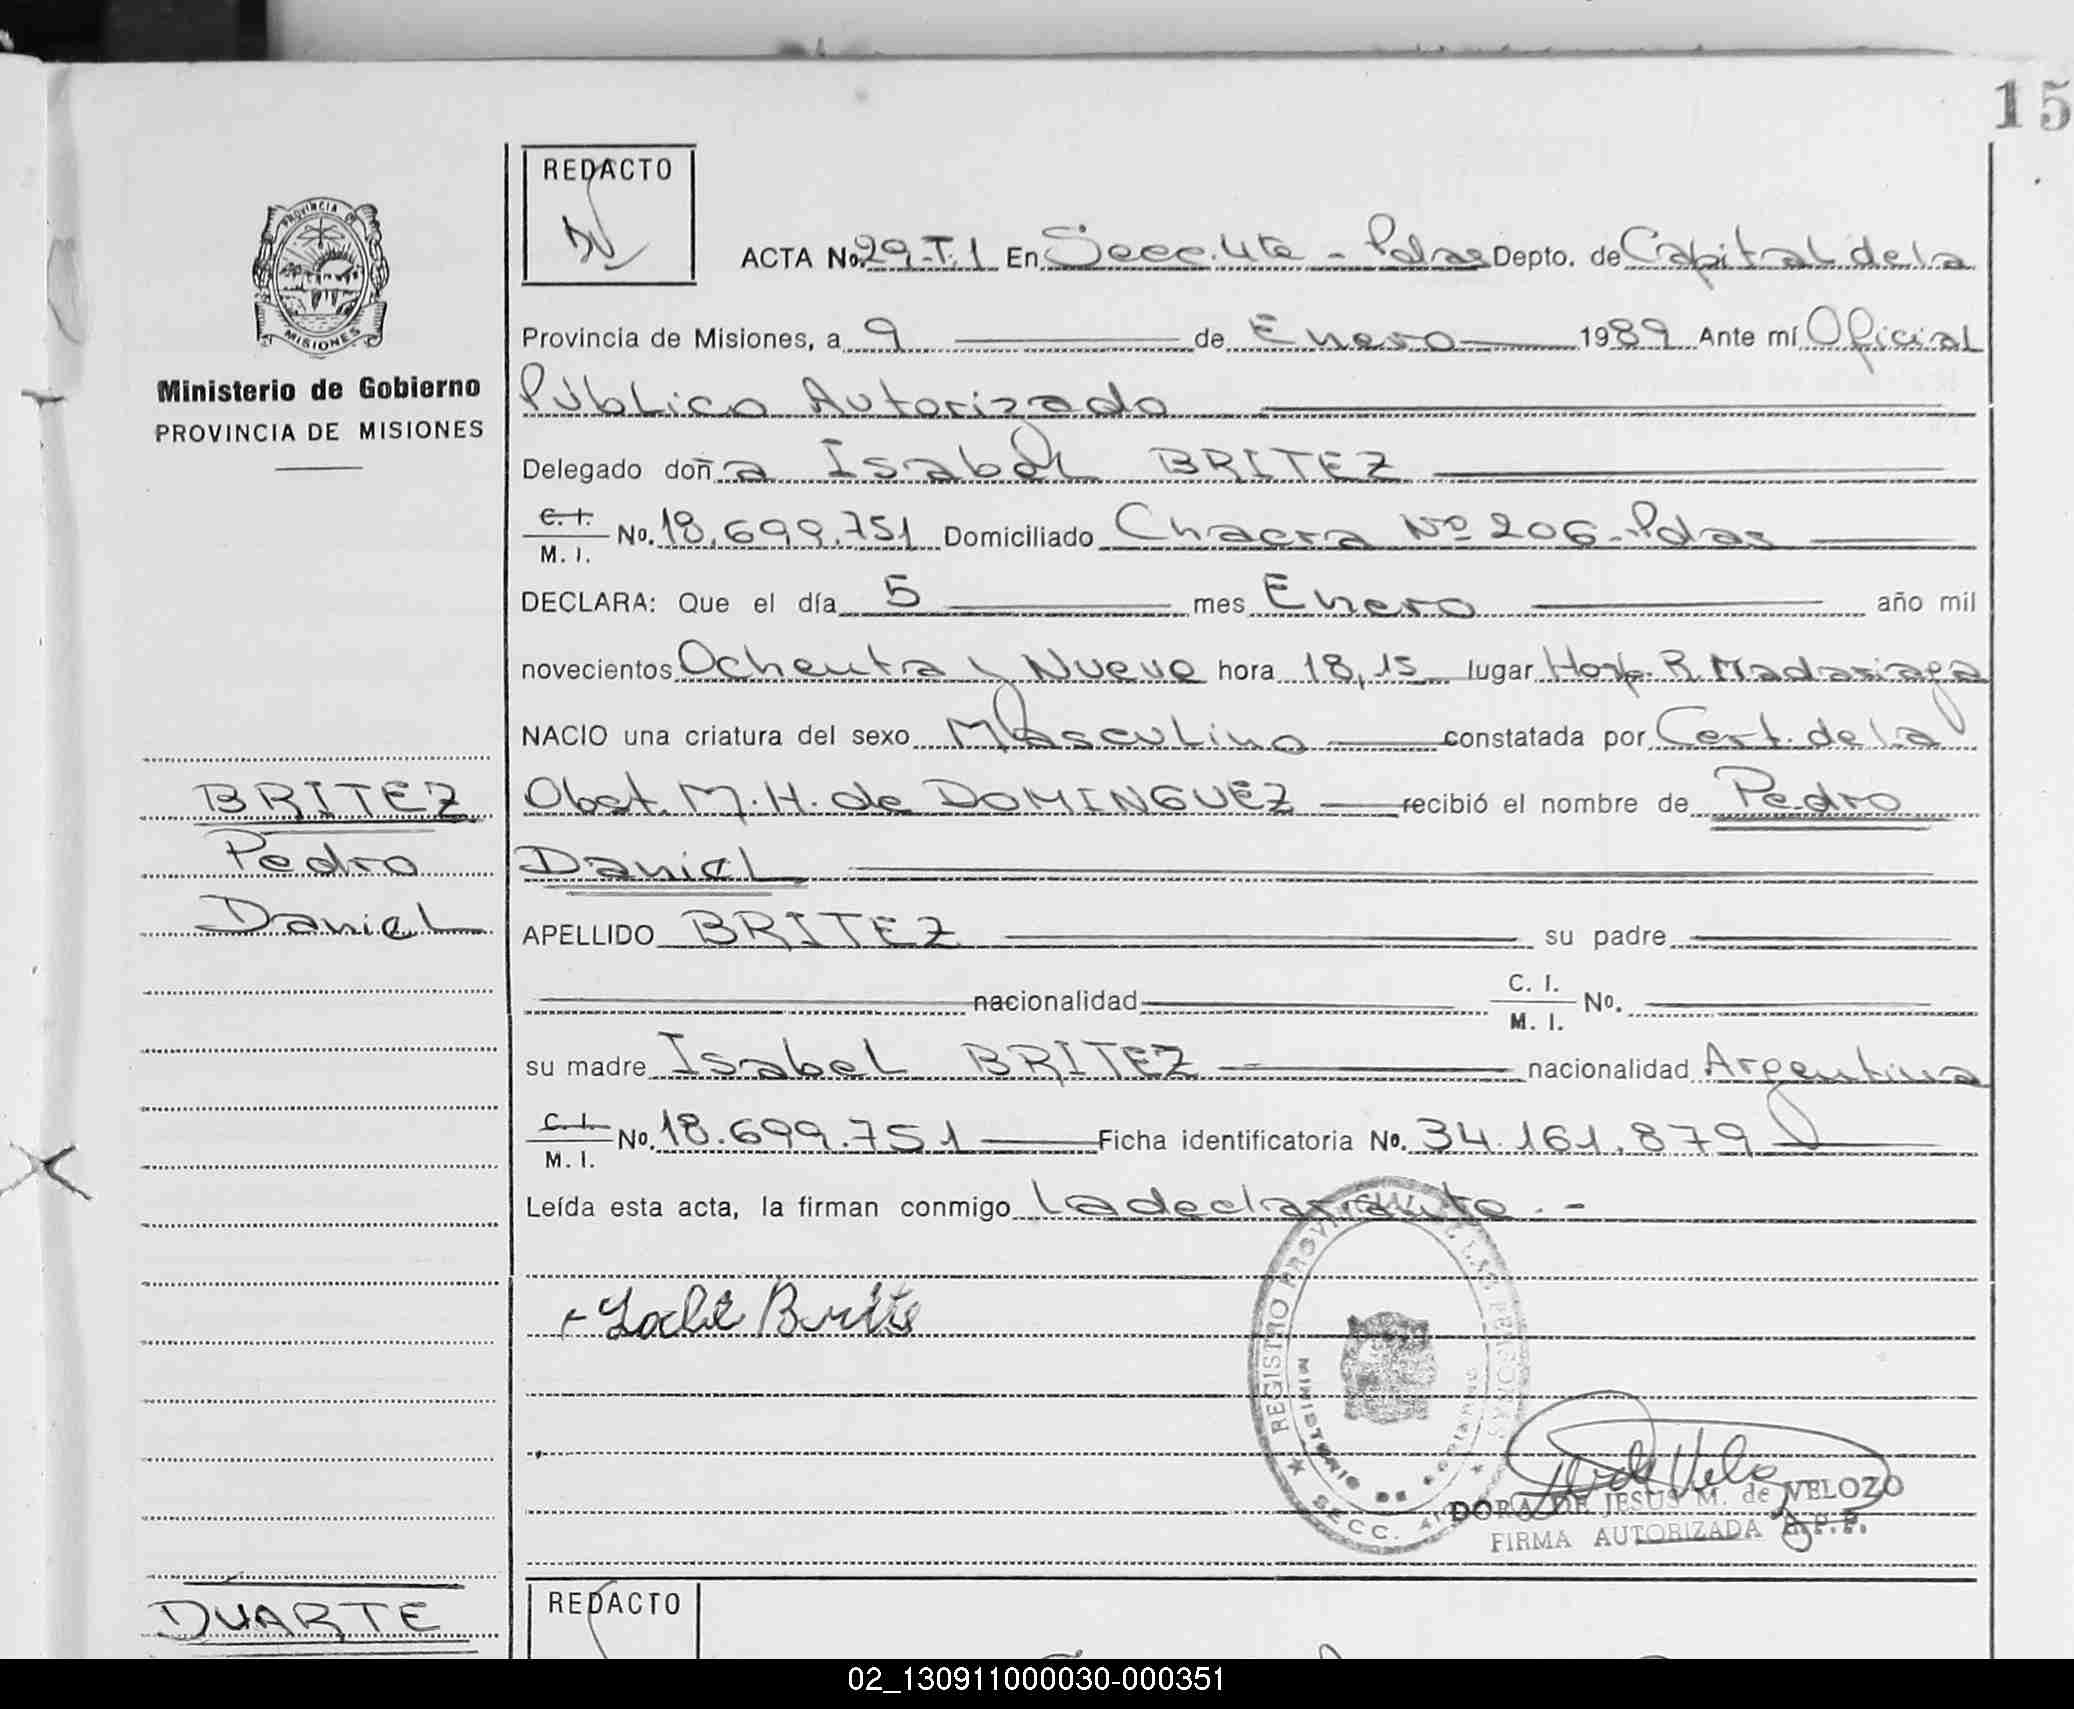 15
REDACTO
PROVINCIA DE
MISIONES
Ministerio de Gobierno
PROVINCIA DE MISIONES
ACTA No. 29-T.1 En Secc. 4ta - Pdas Depto. de Capital de la
Provincia de Misiones, a 9 de Enero 1989 Ante mí Oficial
Público Autorizado
Delegado doña Isabel BRITEZ
C. I. / M. I. No. 18.699.751 Domiciliado Chacra Nº 206 - Pdas
DECLARA: Que el día 5 mes Enero año mil
novecientos Ochenta y Nueve hora 18,15 lugar Hosp. R. Madariaga
NACIO una criatura del sexo Masculino constatada por Cert. de la
BRITEZ
Obst. M. H. de DOMINGUEZ recibió el nombre de Pedro
Pedro
Daniel
Daniel
APELLIDO BRITEZ su padre
nacionalidad C. I. / M. I. No.
su madre Isabel BRITEZ nacionalidad Argentina
C. I. / M. I. No. 18.699.751 Ficha identificatoria No. 34.161.879
Leída esta acta, la firman conmigo la declarante.-
REGISTRO PROVINCIAL DE LAS PERSONAS
MINISTERIO DE GOBIERNO
SECC. 4
DORA DE JESUS M. de VELOZO
FIRMA AUTORIZADA R.P.P.
DUARTE
REDACTO
02_130911000030-000351